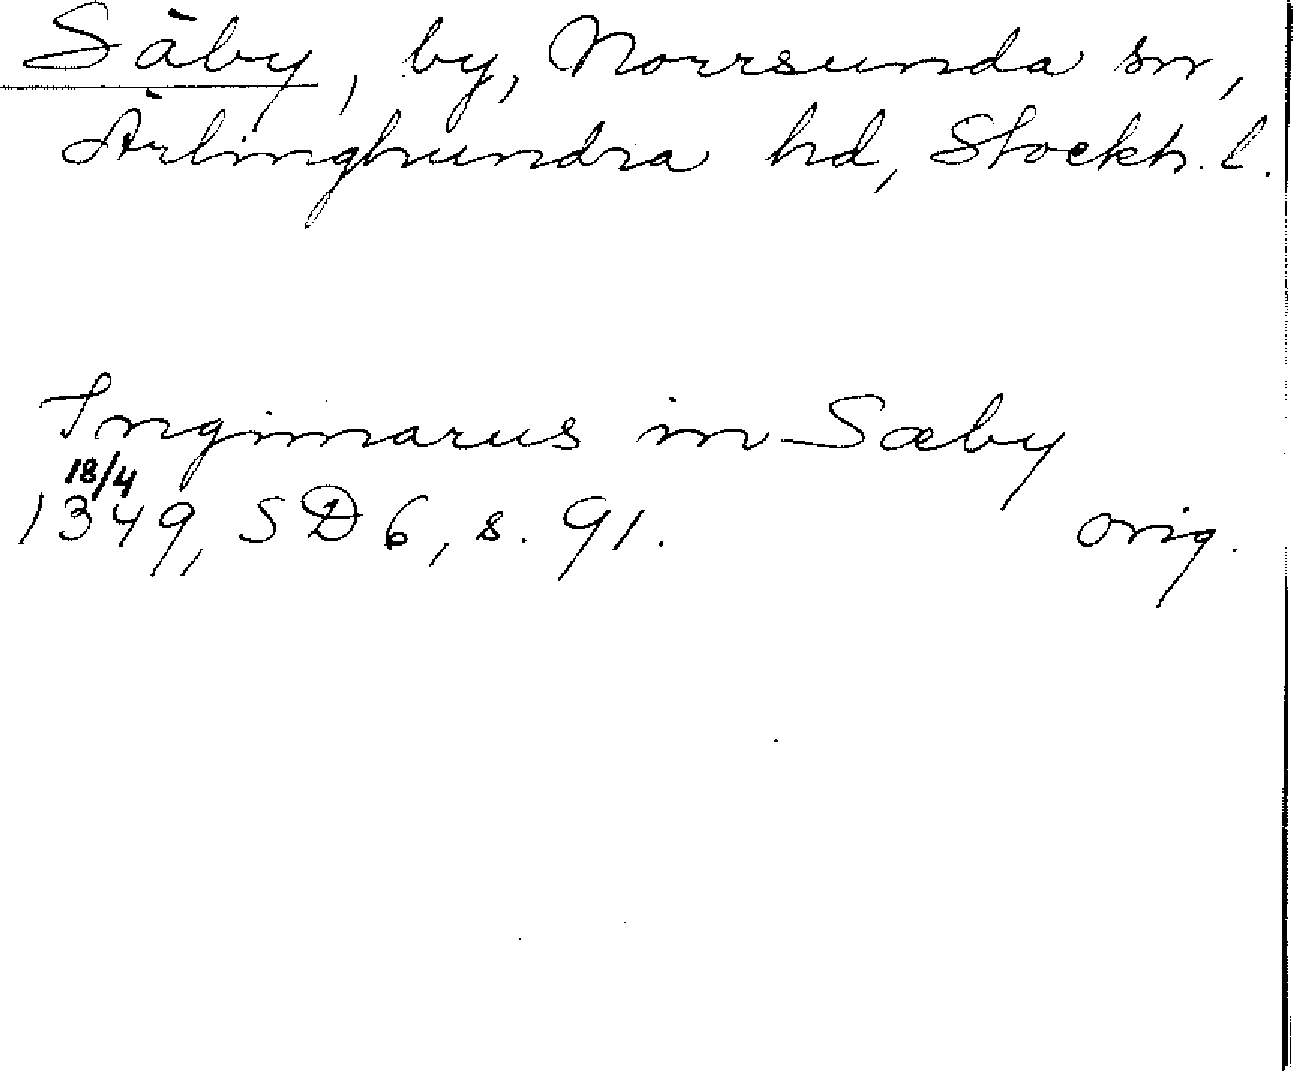 Säby, by, Norrsunda sn,
Ärlinghundra hd, Stockh. l.
Ingimarus in Sæby
18/4
1349, SD 6, s. 91. orig.